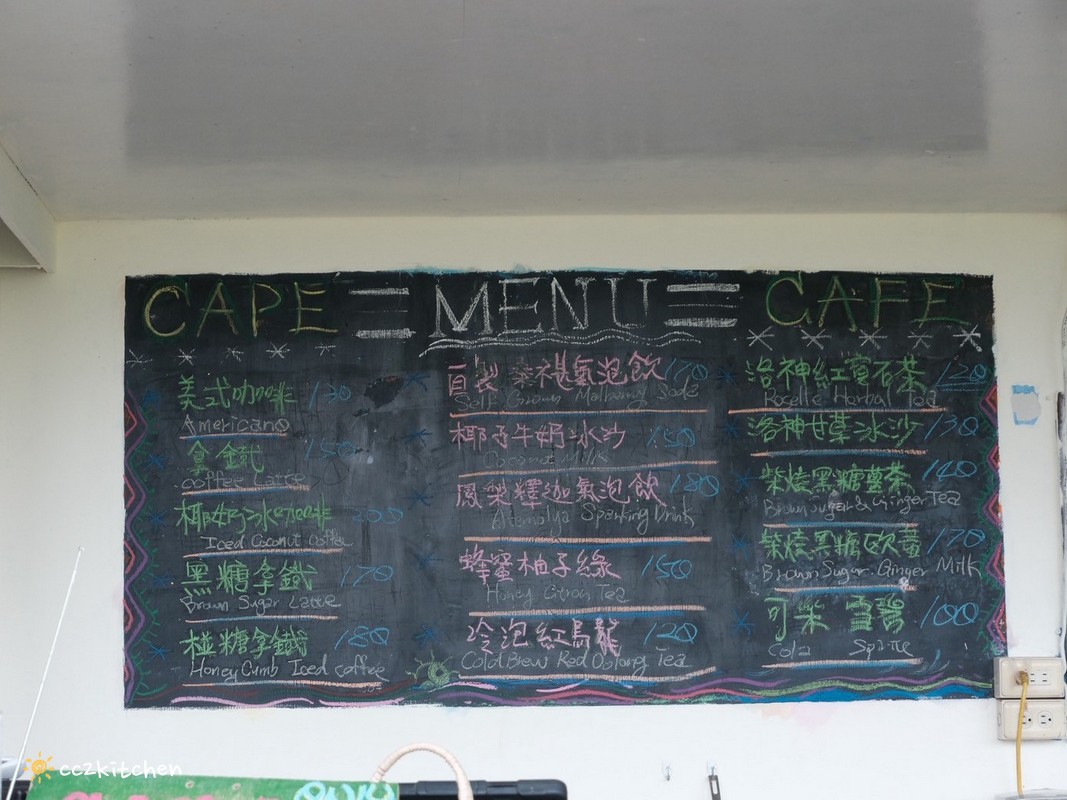 CAPE MENU CAFE
美式咖啡 130
Americano
拿鐵 150
coffee Latte
椰奶冰咖啡 200
Iced Coconut Coffee
黑糖拿鐵 170
Brown Sugar Latte
椪糖拿鐵 180
Honey Cumb Iced coffee
自製桑椹氣泡飲 170
Self Grown Mulberry Soda
椰子牛奶冰沙 150
Coconut Milk
鳳梨釋迦氣泡飲 180
Atemolya Sparking Drink
蜂蜜柚子綠 150
Honey Citron Tea
冷泡紅烏龍 120
Cold Brew Red Oolong Tea
洛神紅寶石茶 120
Roselle Herbal Tea
洛神甘蔗冰沙 130
柴燒黑糖薑茶 140
Brown Sugar & Ginger Tea
柴燒黑糖歐蕾 170
Brown Sugar Ginger Milk
可樂 雪碧 100
Cola Sprite
cc2kitchen